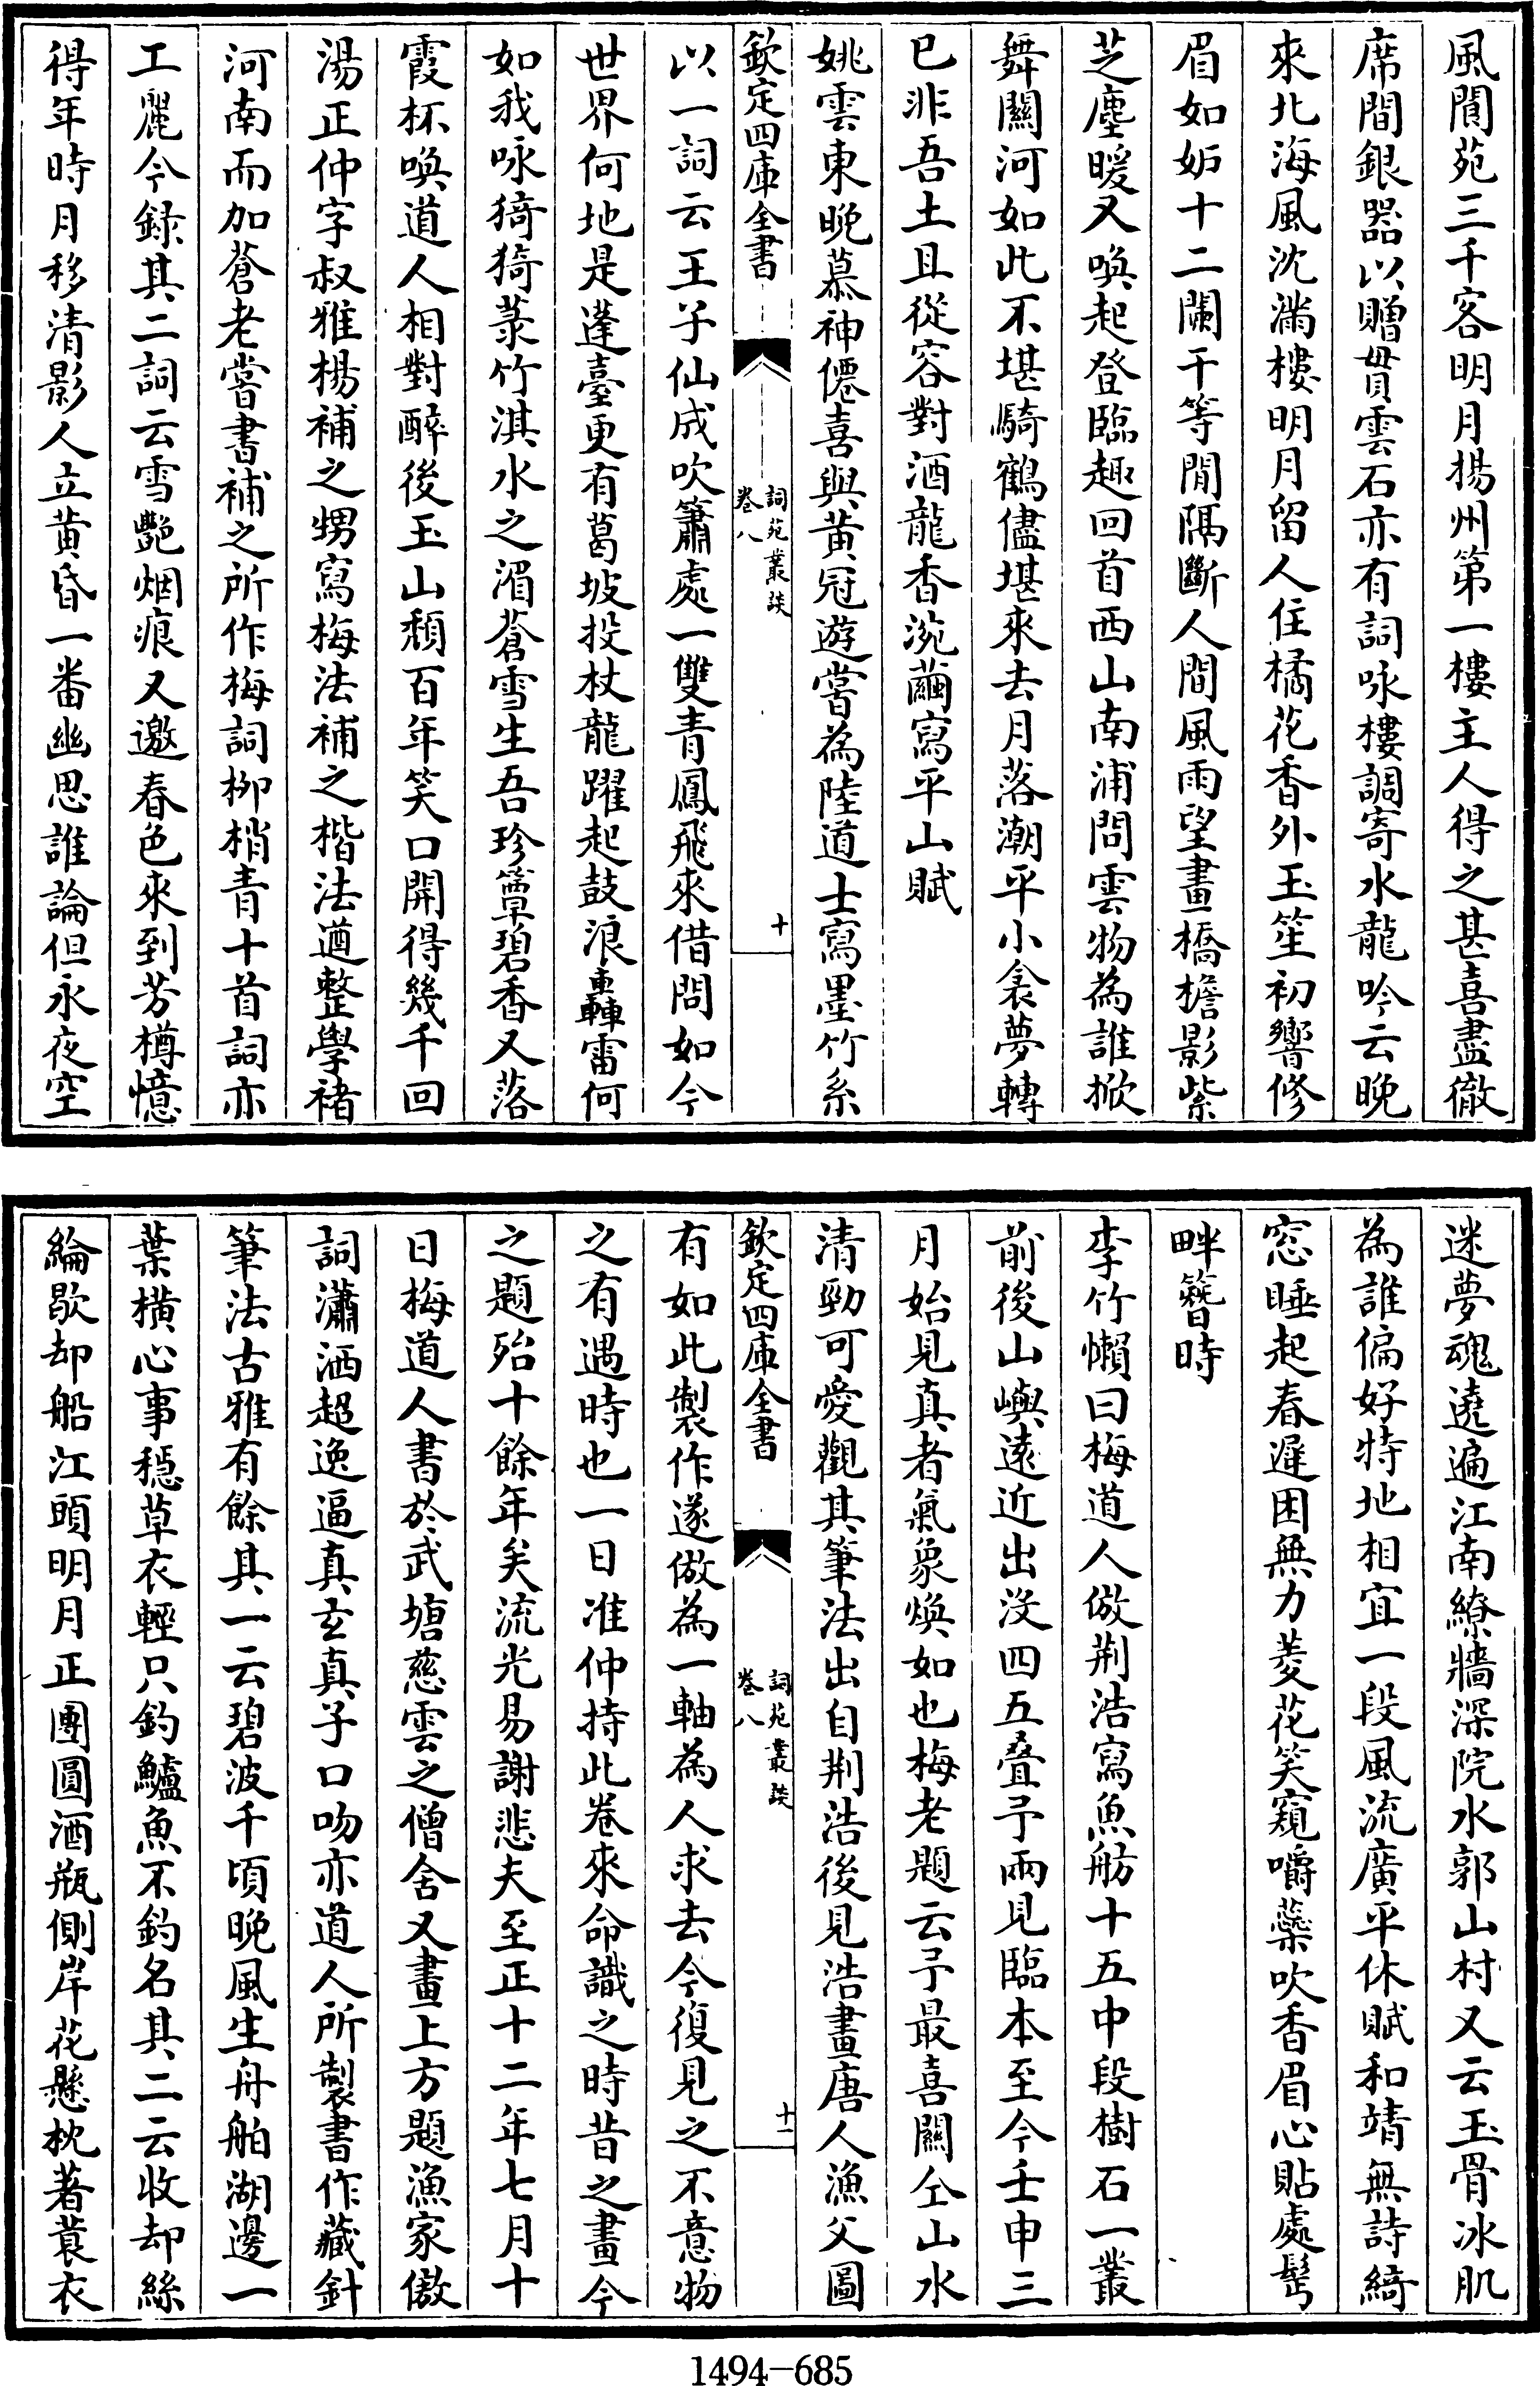 風閬苑三千客明月揚州第一樓主人得之甚喜盡徹
席間銀器以贈貫雲石亦有詞咏樓調寄水龍吟云晚
來北海風沈滿樓明月留人住橘花香外玉笙初響修
眉如妒十二闌干等閒隔斷人間風雨望畫橋檐影紫
芝塵暖又喚起登臨趣回首西山南浦問雲物為誰掀
舞關河如此不堪騎鶴儘堪來去月落潮平小衾夢轉
已非吾土且從容對酒龍香涴繭寫平山賦
姚雲東晚慕神僊喜與黃冠遊嘗為陸道士寫墨竹系
欽定四庫全書
詞苑叢談
卷八
十
以一詞云王子仙成吹簫處一雙青鳳飛來借問如今
世界何地是蓬臺更有葛坡投杖龍躍起鼓浪轟雷何
如我咏猗猗菉竹淇水之湄蒼雪生吾珍簟碧香又落
霞杯喚道人相對醉後玉山頹百年笑口開得幾千回
湯正仲字叔雅楊補之甥寫梅法補之楷法遒整學褚
河南而加蒼老嘗書補之所作梅詞柳梢青十首詞亦
工麗今録其二詞云雪艷烟痕又邀春色來到芳樽憶
得年時月移清影人立黃昏一番幽思誰論但永夜空
迷夢魂遶遍江南繚牆深院水郭山村又云玉骨冰肌
為誰偏好特地相宜一段風流廣平休賦和靖無詩綺
窓睡起春遲困無力菱花笑窺嚼蘂吹香眉心貼處鬢
畔簪時
李竹懶曰梅道人倣荆浩寫魚舫十五中段樹石一叢
前後山嶼遠近出沒四五疊予兩見臨本至今壬申三
月始見真者氣象煥如也梅老題云予最喜關仝山水
清勁可愛觀其筆法出自荆浩後見浩畫唐人漁父圖
欽定四庫全書
詞苑叢談
卷八
十一
有如此製作遂倣為一軸為人求去今復見之不意物
之有遇時也一日准仲持此卷來命識之時昔之畫今
之題殆十餘年矣流光易謝悲夫至正十二年七月十
日梅道人書於武塘慈雲之僧舍又畫上方題漁家傲
詞瀟洒超逸逼真玄真子口吻亦道人所製書作藏針
筆法古雅有餘其一云碧波千頃晚風生舟舶湖邊一
葉橫心事穩草衣輕只釣鱸魚不釣名其二云收却絲
綸歇却船江頭明月正團圓酒瓶側岸花懸枕著蓑衣
1494-685